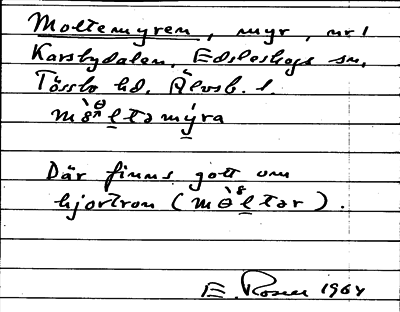 Moltemyren, myr, nr 1
Karsbydalen, Edsleskogs sn,
Tössbo hd. Älvsb. l.
Där finns gott om
hjortron (mò̵ltər).
E. Rosen 1964